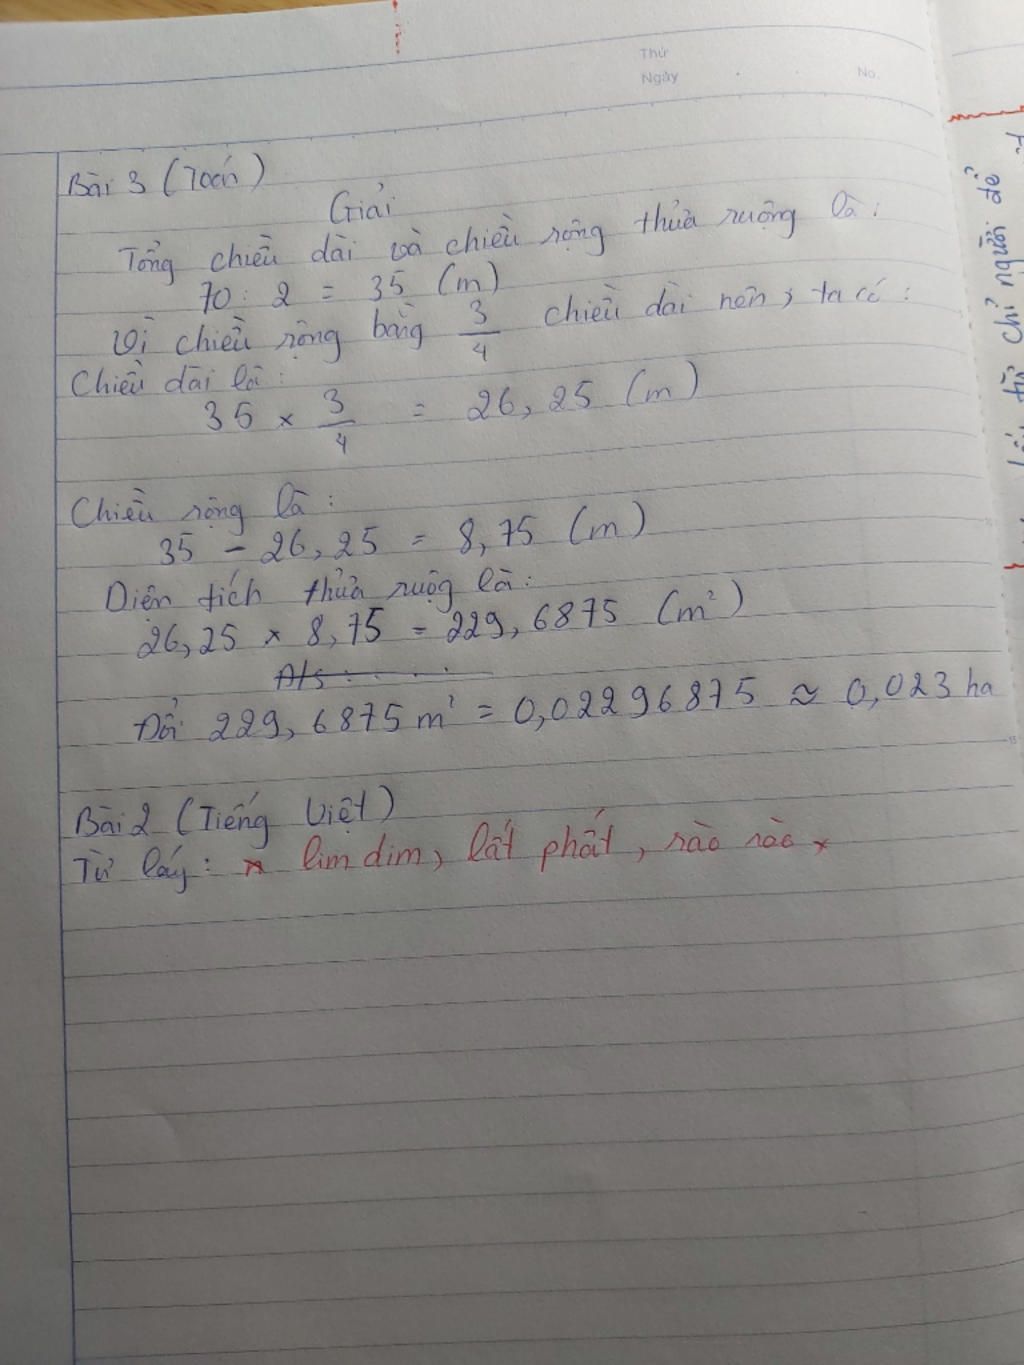 Thứ
Ngày
No.
Bài 3 (Toán)
Giải
Tổng chiều dài và chiều rộng thửa ruộng là:
70 : 2 = 35 (m)
Vì chiều rộng bằng 3/4 chiều dài nên, ta có:
Chiều dài là:
35 × 3/4 = 26,25 (m)
Chiều rộng là:
35 - 26,25 = 8,75 (m)
Diện tích thửa ruộg là:
26,25 × 8,75 = 229,6875 (m²)
Đ/s:
Đổi 229,6875 m² = 0,02296875 ≈ 0,023 ha
Bài 2 (Tiếng Việt)
Từ láy: * lim dim, lất phất, rào rào *
chỉ người để